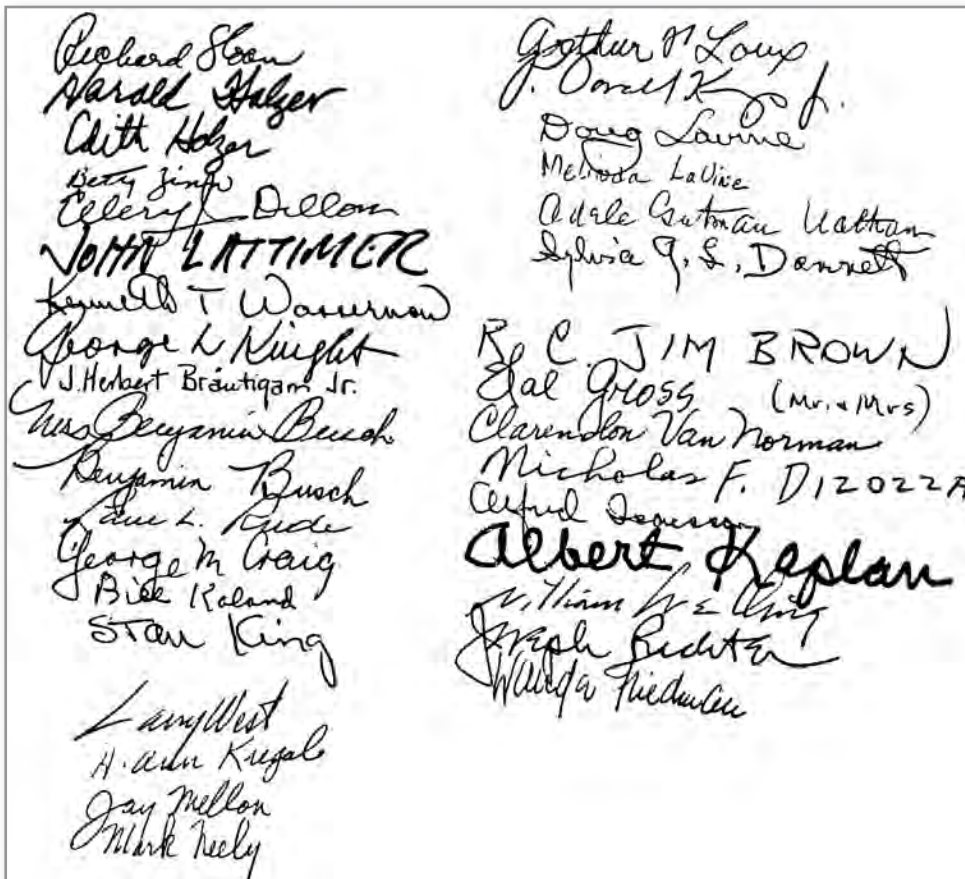 Richard Sloan
Harold Holzer
Edith Holzer
Betty
Ellery L Dillon
JOHN LATTIMER
Kenneth T Wasserman
George L Knight
J. Herbert Brautigam Jr.
Mrs Benjamin Busch
Benjamin Busch
L.
George M Craig
Bill Kaland
STarr King
Larry West
H. Ann Kregal
Jay Mellon
Mark Neely
Arthur Loux
J. Jr.
Doug Lavine
Melinda LaVine
Adele Gutman Nathan
Sylvia G. L. Dannett
R C JIM BROWN
Gross (Mr. & Mrs)
Clarendon Van Norman
Nicholas F. DIZOZZA
Alfred
Albert Kaplan
William Welling
Joseph
Wanda